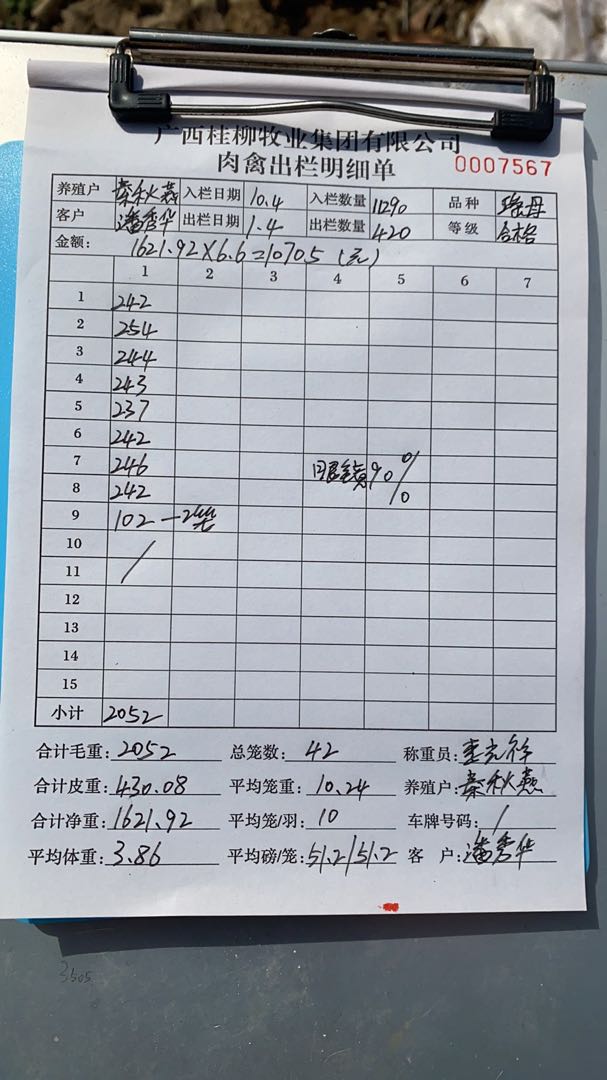 广西桂柳牧业集团有限公司
肉禽出栏明细单 0007567
养殖户 秦秋燕 入栏日期 10.4 入栏数量 11290 品种
客户 潘秀华 出栏日期 1.4 出栏数量 420 等级 合格
金额: 1621.92×6.6=1070.5 (元)
1 2 3 4 5 6 7
1 242
2 254
3 244
4 243
5 237
6 242
7 246 眼镜90%
8 242
9 102 —2笼
10 /
11
12
13
14
15
小计 2052
合计毛重: 2052 总笼数: 42 称重员:
合计皮重: 430.08 平均笼重: 10.24 养殖户: 秦秋燕
合计净重: 1621.92 平均笼/羽: 10 车牌号码: /
平均体重: 3.86 平均磅/笼: 51.2/51.2 客 户: 潘秀华
3505